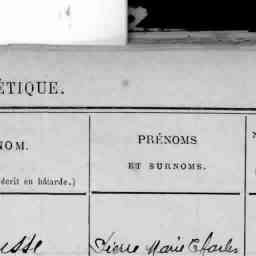 ÉTIQUE.
NOM.
écrit en bâtarde.)
PRÉNOMS
ET SURNOMS.
usse
Pierre Marie Charles